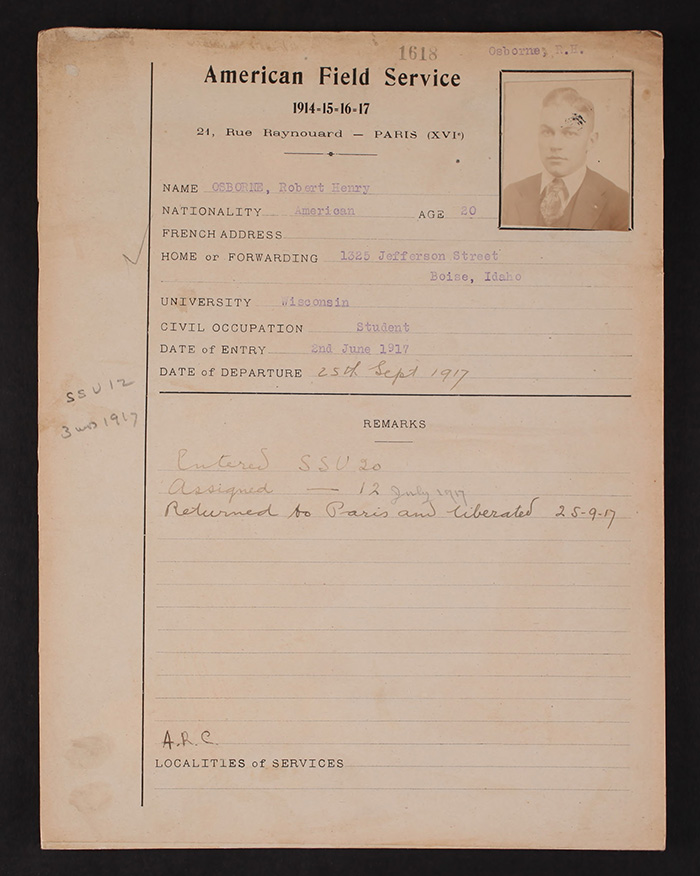 1618
Osborne, R.H.
American Field Service
1914-15-16-17
21, Rue Raynouard — PARIS (XVIe)
NAME OSBORNE, Robert Henry
NATIONALITY American AGE 20
FRENCH ADDRESS
HOME or FORWARDING 1325 Jefferson Street
Boise, Idaho
UNIVERSITY Wisconsin
CIVIL OCCUPATION Student
DATE of ENTRY 2nd June 1917
DATE of DEPARTURE 25th Sept 1917
SSU 12
3 1917
REMARKS
Entered SSU 20
Assigned — 12 July 1917
Returned to Paris and liberated 25-9-17
A.R.C.
LOCALITIES of SERVICES